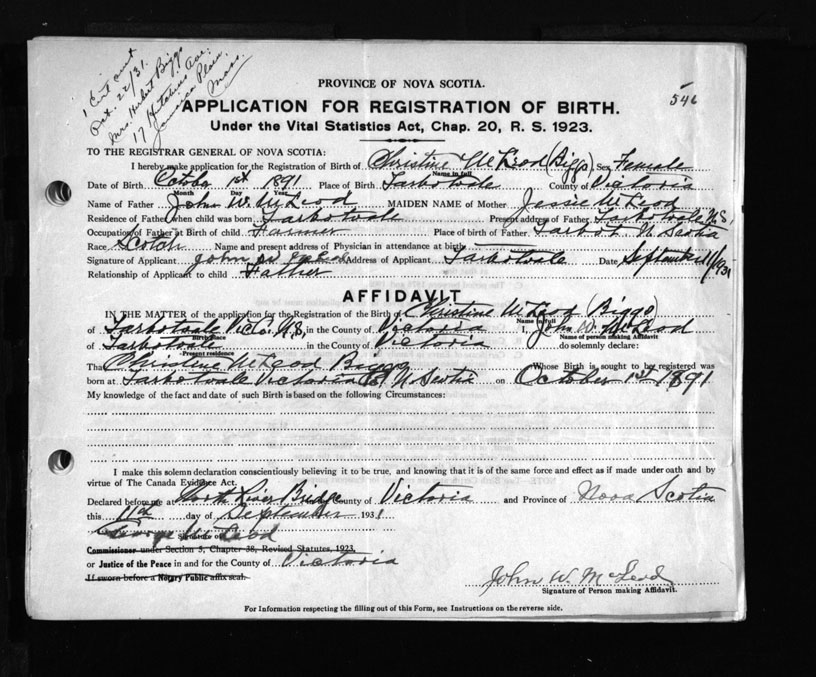 1 Cert sent
Oct. 22/31.
Mrs. Hubert Biggs
17 Hutchins Ave.
Jamaica Plain
Mass.
546
PROVINCE OF NOVA SCOTIA.
APPLICATION FOR REGISTRATION OF BIRTH.
Under the Vital Statistics Act, Chap. 20, R. S. 1923.
TO THE REGISTRAR GENERAL OF NOVA SCOTIA:
I hereby make application for the Registration of Birth of Christine McLeod (Biggs) Sex Female
Name in full
Date of Birth October 1st 1891 Place of Birth Tarbotvale County of Victoria
Month Day Year
Name of Father John W. McLeod MAIDEN NAME of Mother Jessie McLeod
Residence of Father (when child was born Tarbotvale Present address of Father Tarbotvale N.S.
Occupation of Father at Birth of child Farmer Place of birth of Father Tarbot N. Scotia
Race Scotch Name and present address of Physician in attendance at birth
Signature of Applicant John W McLeod Address of Applicant Tarbotvale Date September 11/1931
Relationship of Applicant to child Father
AFFIDAVIT
IN THE MATTER of the application for the Registration of the Birth of Christine McLeod (Biggs)
Name in full
of Tarbotvale Victo. N.S. in the County of Victoria I, John W. McLeod
Birth Place Name of person making Affidavit
of Tarbotvale in the County of Victoria do solemnly declare:
Present residence
That Christine McLeod Biggs Whose Birth is sought to be registered was
born at Tarbotvale Victoria Co N. Scotia on October 1st 1891
My knowledge of the fact and date of such Birth is based on the following Circumstances:
I make this solemn declaration conscientiously believing it to be true, and knowing that it is of the same force and effect as if made under oath and by
virtue of The Canada Evidence Act.
Declared before me at North River Bridge County of Victoria and Province of Nova Scotia
this 11th day of September 1931
George McLeod
Signature of
Commissioner under Section 5, Chapter 38, Revised Statutes, 1923,
or Justice of the Peace in and for the County of Victoria
If sworn before a Notary Public affix seal.
John W. McLeod
Signature of Person making Affidavit.
For Information respecting the filling out of this Form, see Instructions on the reverse side.